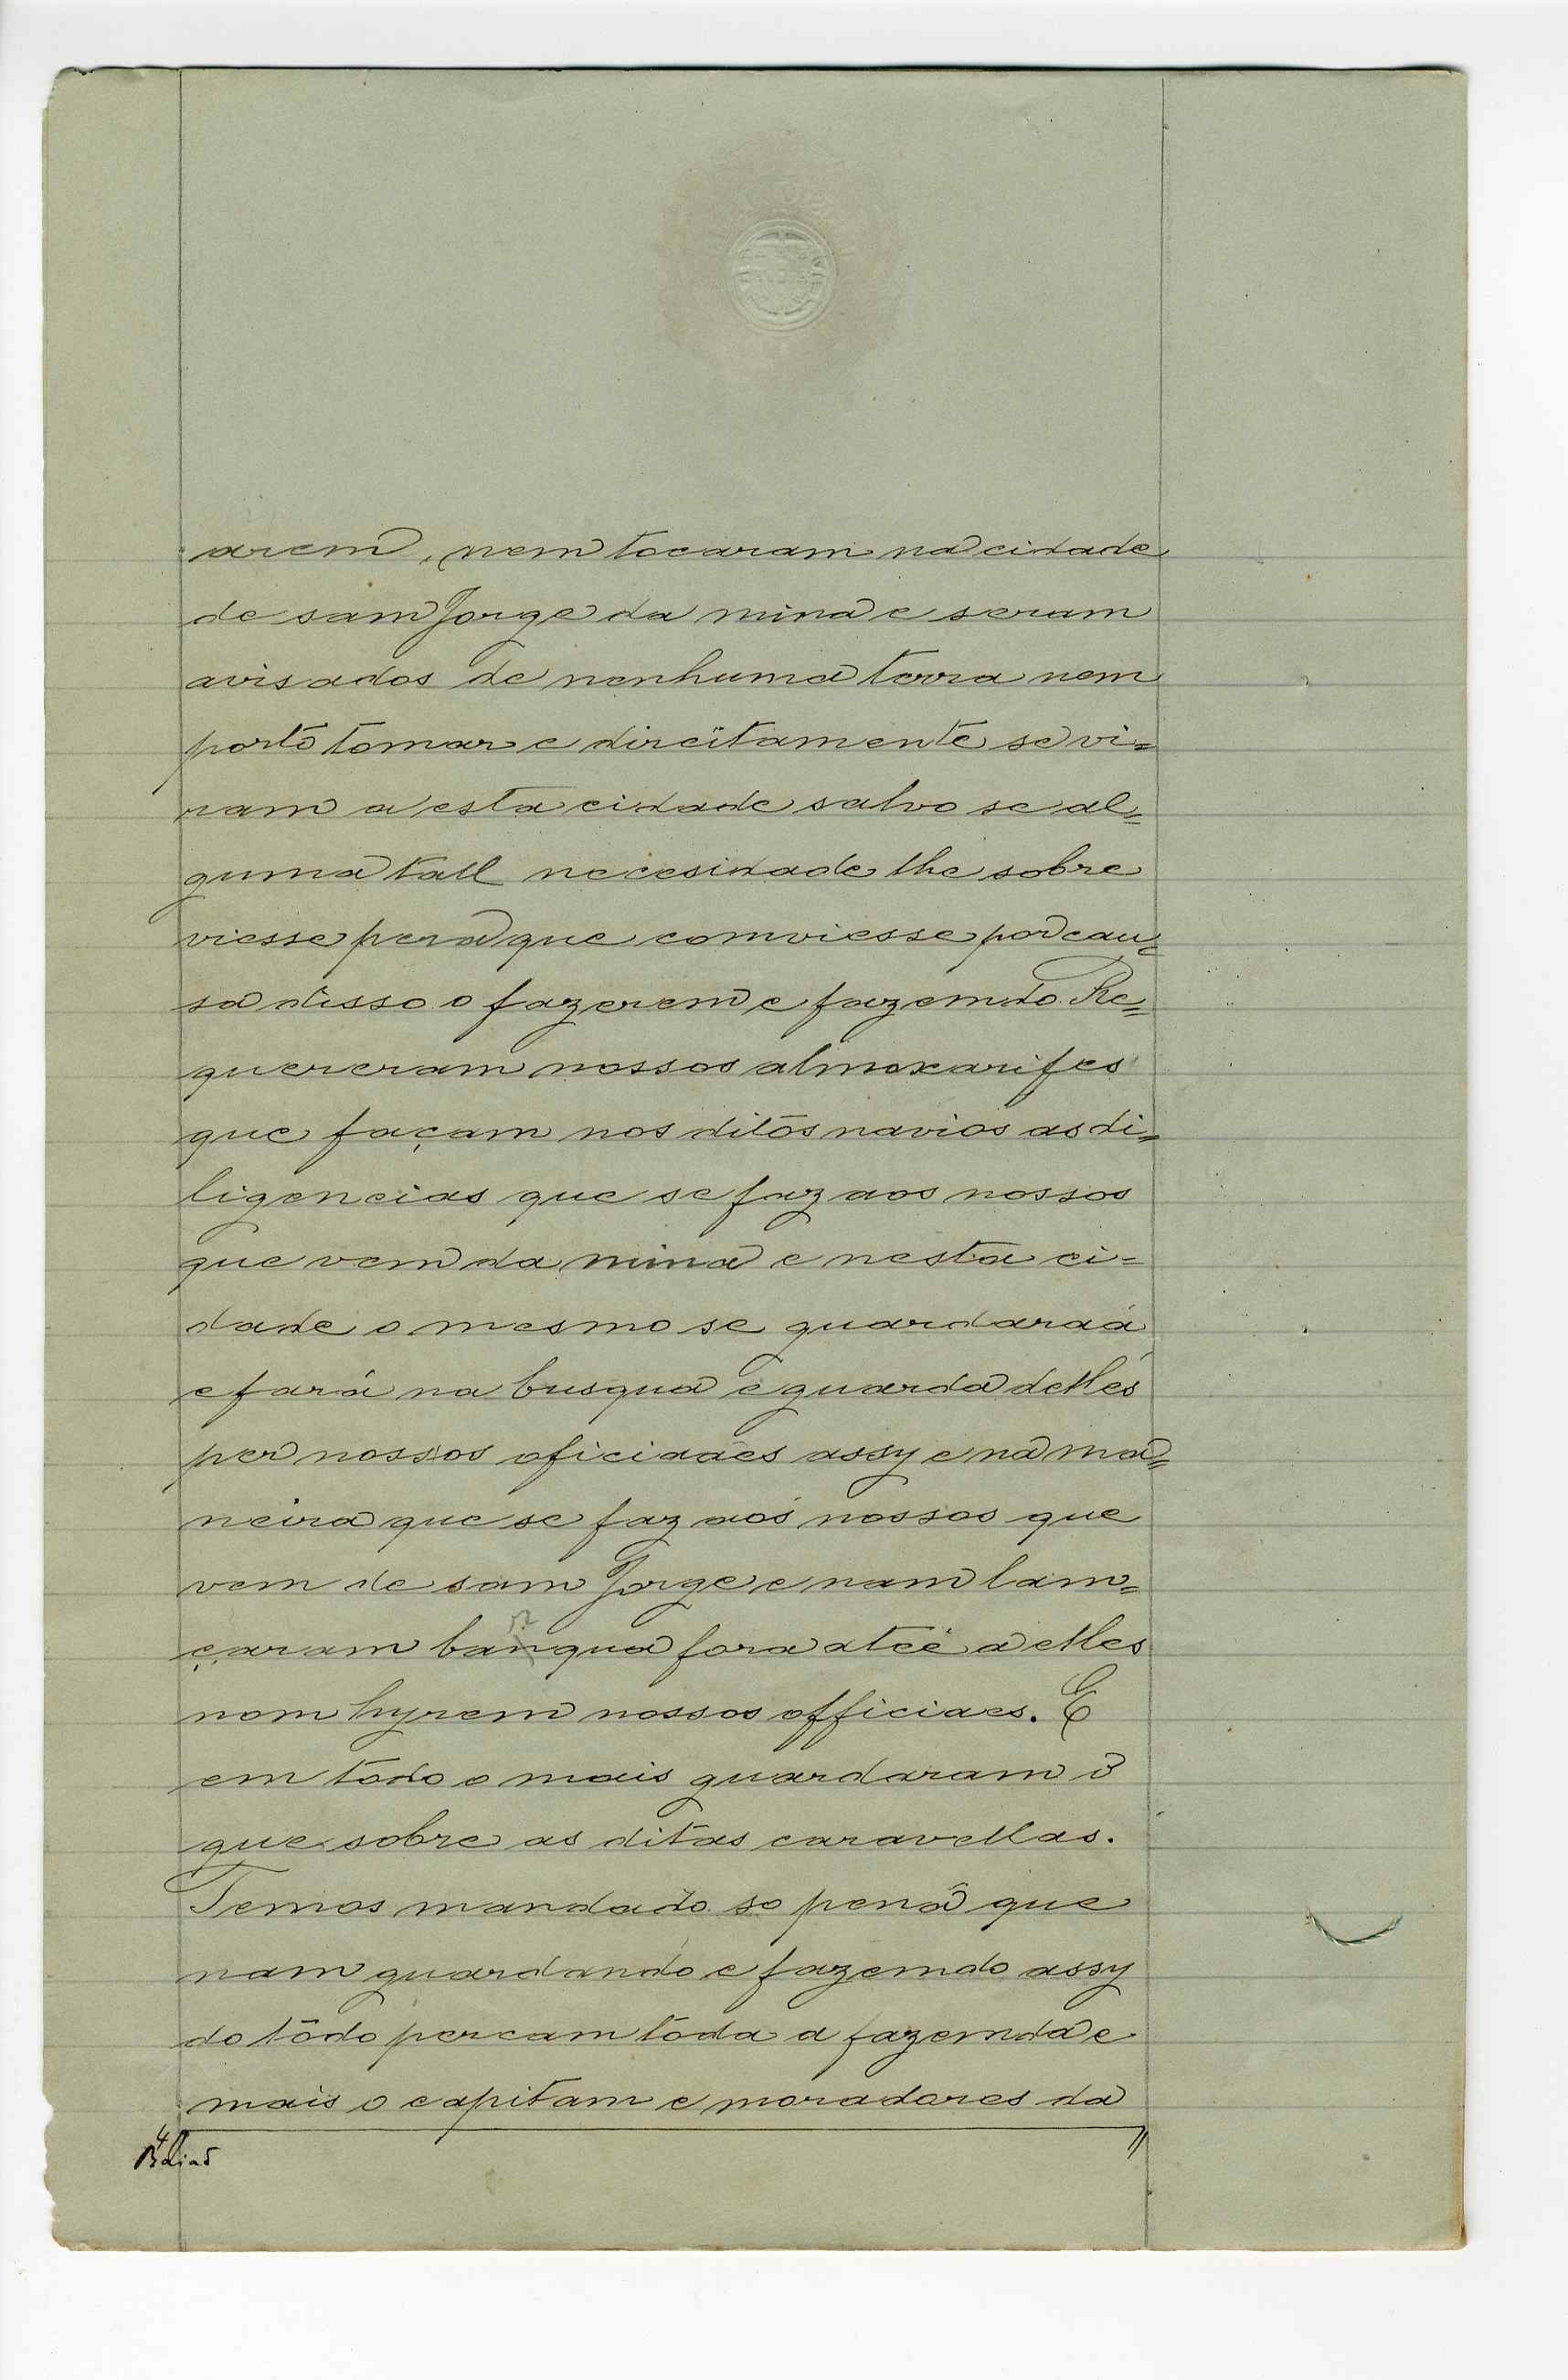 arem, nem tocaram na cidade
de sam Jorge da mina e seram
avisados de nenhuma terra nem
porto tomar e direitamente se vi=
ram a esta cidade salvo se al=
guma tall necesidade lhe sobre
viesse pera que comviesse por cau=
sa disso o fazerem e fazemdo Re=
quereram nossos almoxarifes
que façam nos ditos navios as di=
ligencias que se faz aos nossos
que vem da mina e nesta ci=
dade o mesmo se guardaraá
e fará na busqua e guarda delles
per nossos oficiaaes assy e na ma=
neira que se faz aos nossos que
vem de sam Jorge e nam lam=
çaram banqua fora atee a elles
nom hyrem nossos officiaes. E
em todo o mais guardaram o
que sobre as ditas caravellas.
Temos mandado so pena que
nam guardando e fazemdo assy
do todo percam toda a fazemda e
mais o capitam e moradores da